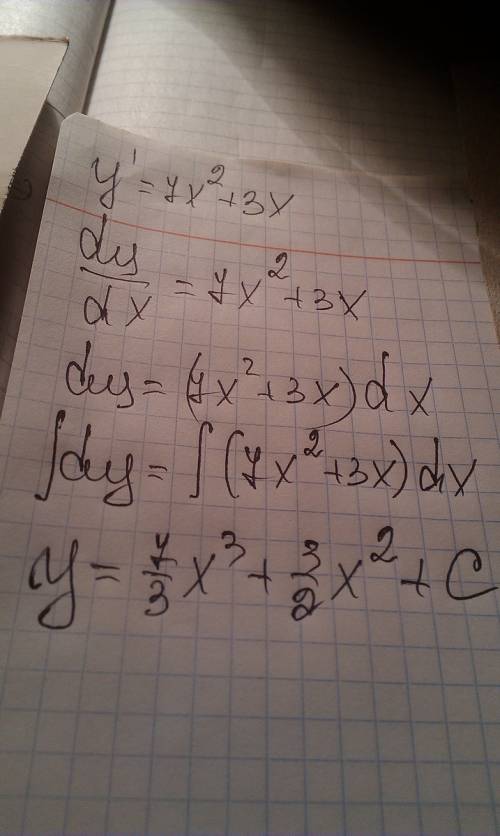 y' = 7x² + 3x
dy/dx = 7x² + 3x
dy = (7x² + 3x) dx
∫dy = ∫(7x² + 3x) dx
y = 7/3 x³ + 3/2 x² + C